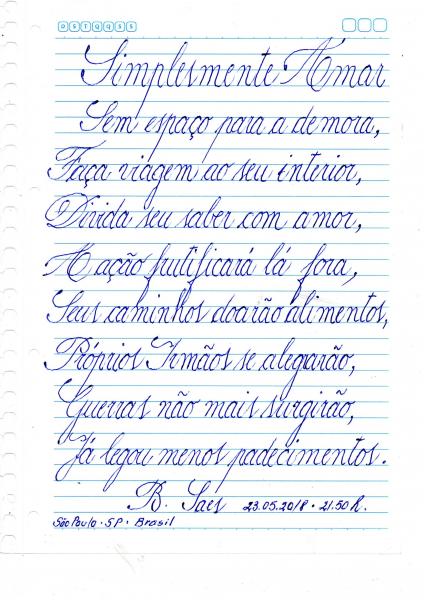 D S T Q Q S S
Simplesmente Amar
Sem espaço para a demora,
Faça viagem ao seu interior,
Divida seu saber com amor,
A ação frutificará lá fora,
Seus caminhos doarão alimentos,
Próprios Irmãos se alegarão,
Guerras não mais surgirão,
Já legou menos padecimentos.
B. Saes 23.05.2018 · 21.50 h.
São Paulo · SP · Brasil